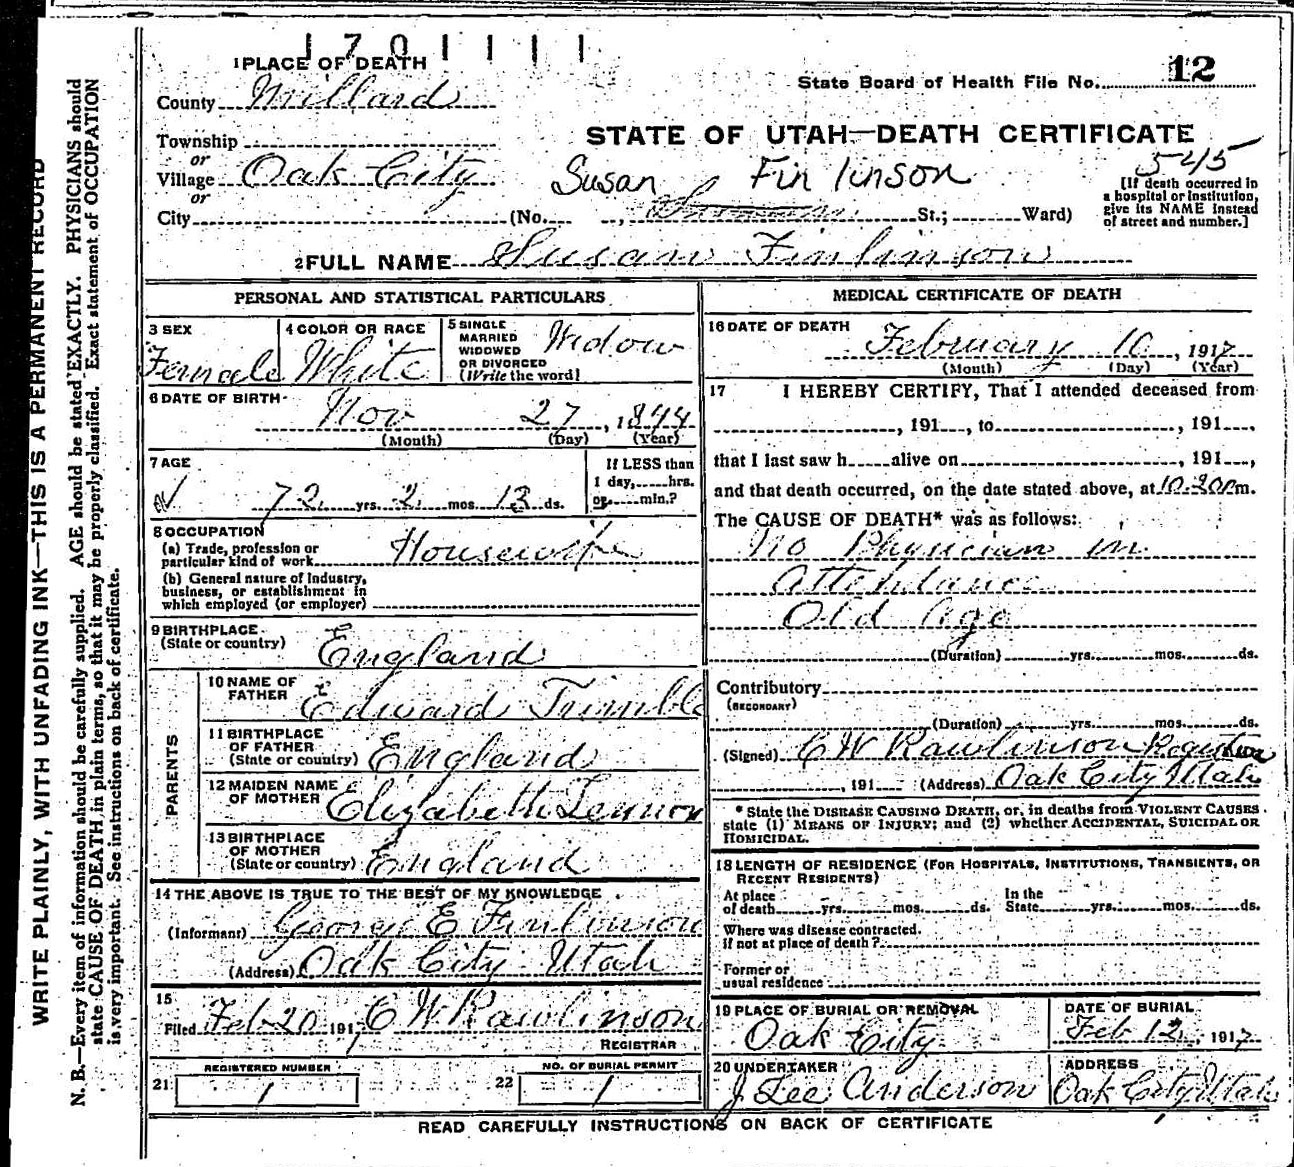 1701111
1 PLACE OF DEATH
State Board of Health File No. 12
County Millard
Township
STATE OF UTAH—DEATH CERTIFICATE
or
Village Oak City
Susan Finlinson
545
or
City (No. , St.; Ward)
[If death occurred in
a hospital or institution,
give its NAME instead
of street and number.]
2 FULL NAME Susan Finlinson
PERSONAL AND STATISTICAL PARTICULARS
3 SEX
Female
4 COLOR OR RACE
White
5 SINGLE
MARRIED
WIDOWED
OR DIVORCED
(Write the word)
Widow
6 DATE OF BIRTH
Nov 27, 1844
(Month) (Day) (Year)
7 AGE
72 yrs. 2 mos. 13 ds.
If LESS than
1 day, hrs.
or min.?
8 OCCUPATION
(a) Trade, profession or
particular kind of work Housewife
(b) General nature of Industry,
business, or establishment in
which employed (or employer)
9 BIRTHPLACE
(State or country) England
PARENTS
10 NAME OF
FATHER Edward Trimble
11 BIRTHPLACE
OF FATHER
(State or country) England
12 MAIDEN NAME
OF MOTHER Elizabeth Lennox
13 BIRTHPLACE
OF MOTHER
(State or country) England
14 THE ABOVE IS TRUE TO THE BEST OF MY KNOWLEDGE
(Informant) George E Finlinson
(Address) Oak City Utah
15
Filed Feb 20 191 C W Rawlinson
REGISTRAR
REGISTERED NUMBER
21 1
NO. OF BURIAL PERMIT
22 1
MEDICAL CERTIFICATE OF DEATH
16 DATE OF DEATH
February 10, 1917
(Month) (Day) (Year)
17 I HEREBY CERTIFY, That I attended deceased from
, 191 , to , 191 ,
that I last saw h alive on , 191 ,
and that death occurred, on the date stated above, at 10.20 P m.
The CAUSE OF DEATH* was as follows:
No Physician in
attendance
Old Age
(Duration) yrs. mos. ds.
Contributory
(SECONDARY)
(Duration) yrs. mos. ds.
(Signed) C W Rawlinson Registrar
, 191 (Address) Oak City Utah
* State the DISEASE CAUSING DEATH, or, in deaths from VIOLENT CAUSES
state (1) MEANS OF INJURY; and (2) whether ACCIDENTAL, SUICIDAL OR
HOMICIDAL.
18 LENGTH OF RESIDENCE (FOR HOSPITALS, INSTITUTIONS, TRANSIENTS, OR
RECENT RESIDENTS)
At place
of death yrs. mos. ds.
In the
State yrs. mos. ds.
Where was disease contracted.
if not at place of death?
Former or
usual residence
19 PLACE OF BURIAL OR REMOVAL
Oak City
DATE OF BURIAL
Feb 12, 1917
20 UNDERTAKER
J Lee Anderson
ADDRESS
Oak City Utah
READ CAREFULLY INSTRUCTIONS ON BACK OF CERTIFICATE
WRITE PLAINLY, WITH UNFADING INK—THIS IS A PERMANENT RECORD
N. B.—Every item of information should be carefully supplied. AGE should be stated EXACTLY. PHYSICIANS should
state CAUSE OF DEATH in plain terms, so that it may be properly classified. Exact statement of OCCUPATION
is very important. See instructions on back of certificate.